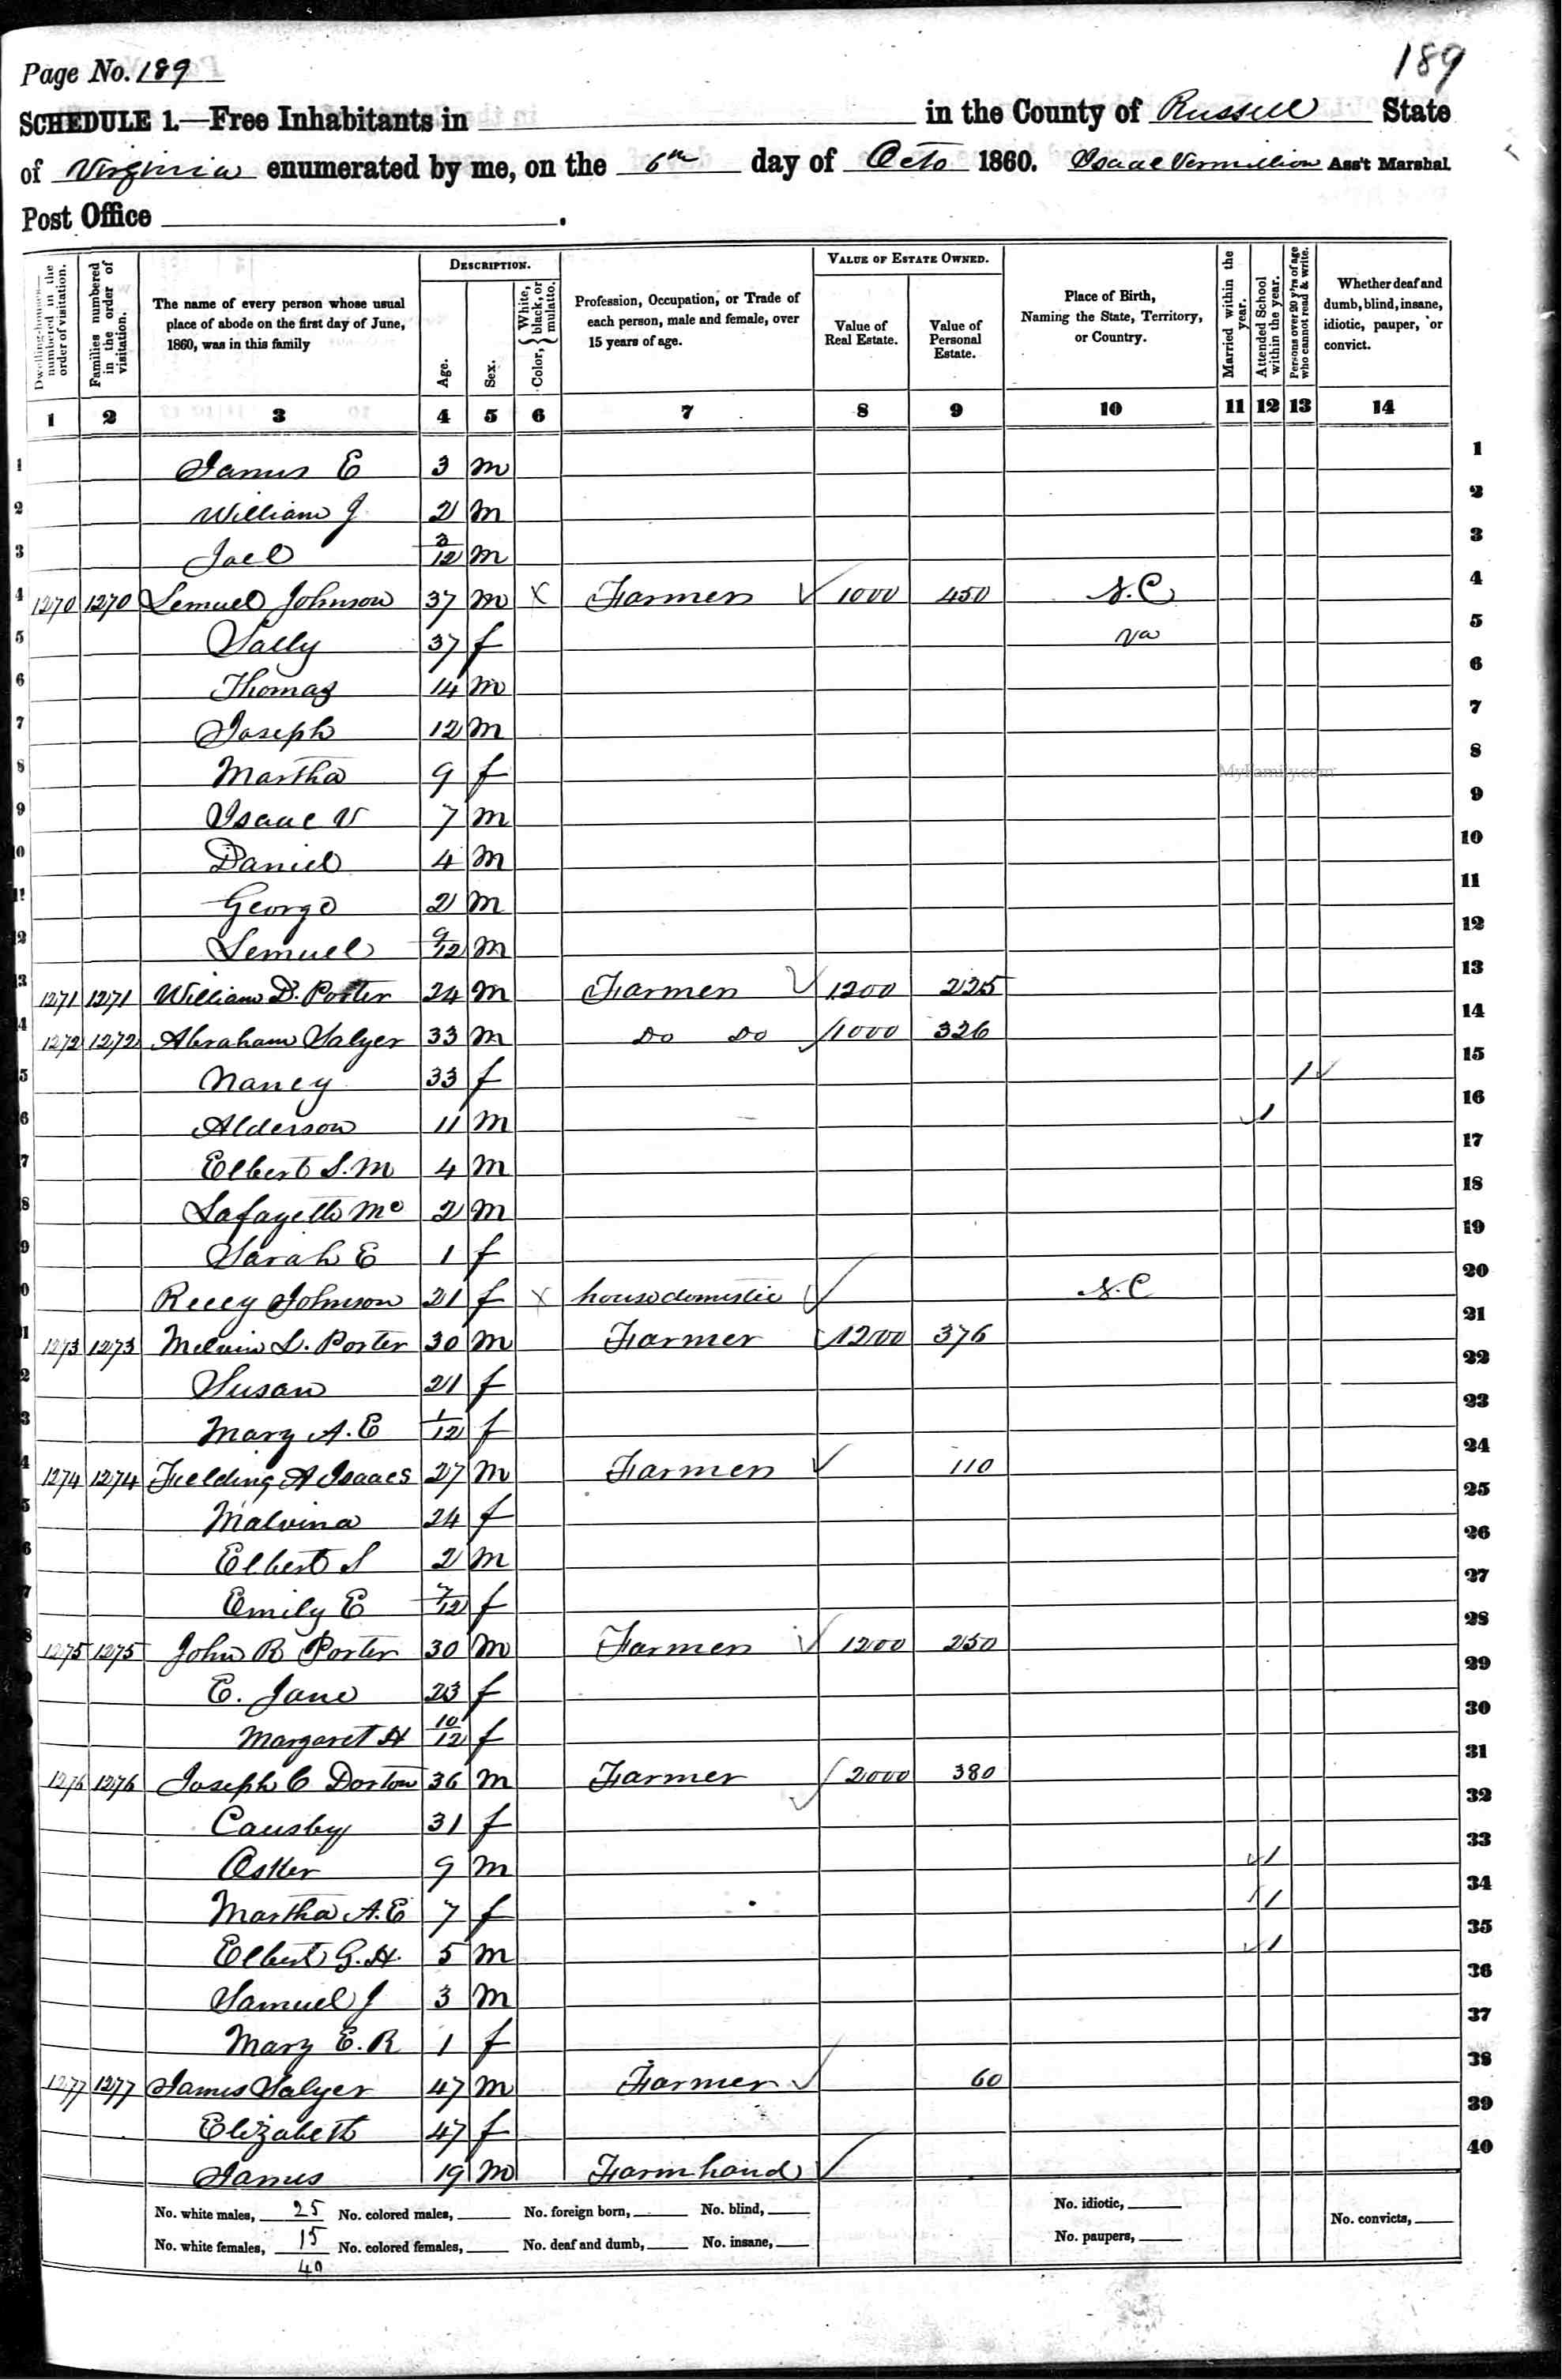 189
Page No. 189
SCHEDULE 1.—Free Inhabitants in in the County of Russell State
of Virginia enumerated by me, on the 6th day of Octo 1860. Isaac Vermillion Ass't Marshal
Post Office .
Dwelling-houses—numbered in the order of visitation.
Families numbered in the order of visitation.
The name of every person whose usual place of abode on the first day of June, 1860, was in this family
DESCRIPTION.
Age.
Sex.
Color, { White, black, or mulatto.
Profession, Occupation, or Trade of each person, male and female, over 15 years of age.
VALUE OF ESTATE OWNED.
Value of Real Estate.
Value of Personal Estate.
Place of Birth, Naming the State, Territory, or Country.
Married within the year.
Attended School within the year.
Persons over 20 y'rs of age who cannot read & write.
Whether deaf and dumb, blind, insane, idiotic, pauper, or convict.
1 2 3 4 5 6 7 8 9 10 11 12 13 14
1 James E 3 m 1
2 William J 2 m 2
3 Joel 3/12 m 3
4 1270 1270 Lemuel Johnson 37 m X Farmer 1000 450 N.C 4
5 Sally 37 f Va 5
6 Thomas 14 m 6
7 Joseph 12 m 7
8 Martha 9 f 8
MyFamily.com
9 Isaac V 7 m 9
10 Daniel 4 m 10
11 George 2 m 11
12 Lemuel 9/12 m 12
13 1271 1271 William D. Porter 24 m Farmer 1200 225 13
14 1272 1272 Abraham Salyer 33 m Do Do 1000 326 14
15 Nancy 33 f 1 15
16 Alderson 11 m 1 16
17 Elbert S. M 4 m 17
18 Lafayette Mc 2 m 18
19 Sarah E 1 f 19
20 Johnson 21 f X house domestic N.C 20
21 1273 1273 Melvin L. Porter 30 m Farmer 1200 376 21
22 Susan 21 f 22
23 Mary A. E 1/12 f 23
24 1274 1274 Fielding A Isaacs 27 m Farmer 110 24
25 Malvina 24 f 25
26 Elbert S 2 m 26
27 Emily E 7/12 f 27
28 1275 1275 John R Porter 30 m Farmer 1200 250 28
29 E. Jane 23 f 29
30 Margaret H 10/12 f 30
31 1276 1276 Joseph C Dorton 36 m Farmer 2000 380 31
32 Causby 31 f 32
33 9 m 1 33
34 Martha A. E 7 f 1 34
35 Elbert G. H. 5 m 1 35
36 Samuel J 3 m 36
37 Mary E. R 1 f 37
38 1277 1277 James Salyer 47 m Farmer 60 38
39 Elizabeth 47 f 39
40 James 19 m Farm hand 40
No. white males, 25 No. colored males, No. foreign born, No. blind, No. idiotic,
No. white females, 15 No. colored females, No. deaf and dumb, No. insane, No. paupers, No. convicts,
40